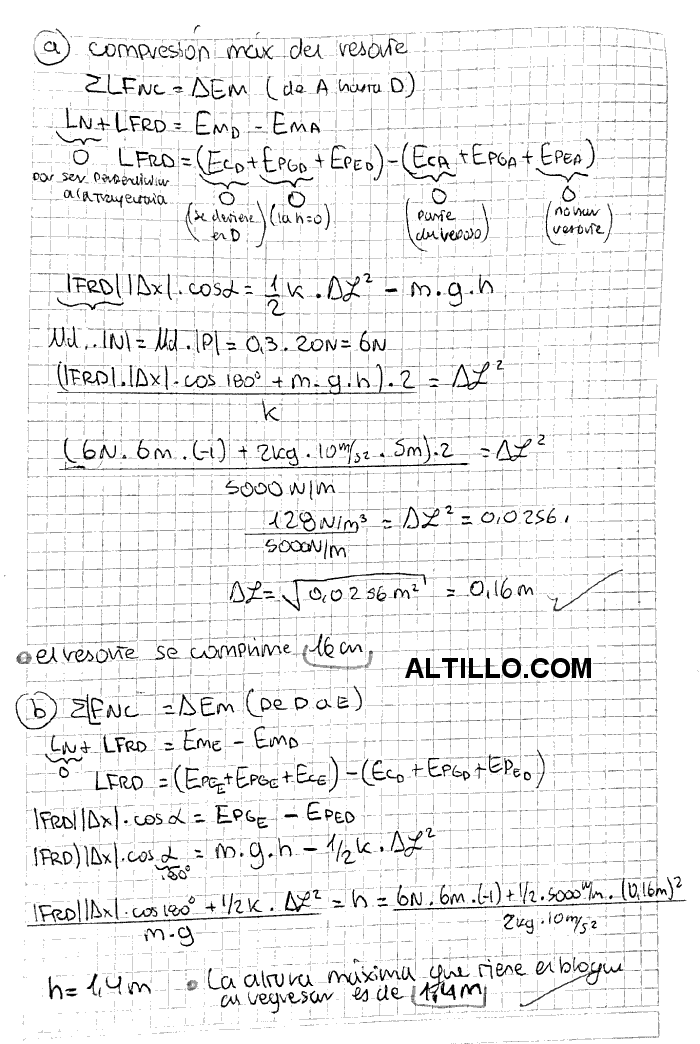 a) compresión máx del resorte
ΣLFNC = ΔEM (de A hasta D)
LN + LFRD = EMD - EMA
0 LFRD = (ECD + EPGD + EPED) - (ECA + EPGA + EPEA)
por ser perpendicular a la trayectoria
0 (se detiene en D) 0 (la h=0) 0 (parte del reposo) 0 (no hay resorte)
|FRD||Δx|.cosα = 1/2 k . ΔL² - m.g.h
μd . |N| = μd . |P| = 0,3 . 20N = 6N
(|FRD|.|Δx|.cos 180° + m.g.h).2 / k = ΔL²
(6N . 6m . (-1) + 2kg . 10m/s² . 5m).2 / 5000 N/m = ΔL²
128 N/m³ / 5000 N/m = ΔL² = 0,0256.
ΔL = √0,0256m² = 0,16m
• el resorte se comprime 16cm
ALTILLO.COM
b) ΣLFNC = ΔEM (De D a E)
LN + LFRD = EME - EMD
0
LFRD = (EPEE + EPGE + ECE) - (ECD + EPGD + EPED)
|FRD||Δx|.cosα = EPGE - EPED
|FRD||Δx|.cosα = m.g.h - 1/2 k . ΔL²
180°
|FRD||Δx|.cos180° + 1/2 k . ΔL² / m.g = h = 6N . 6m . (-1) + 1/2 . 5000N/m . (0,16m)² / 2kg . 10m/s²
h = 1,4m • La altura máxima que tiene el bloque
al regresar es de 1,4m